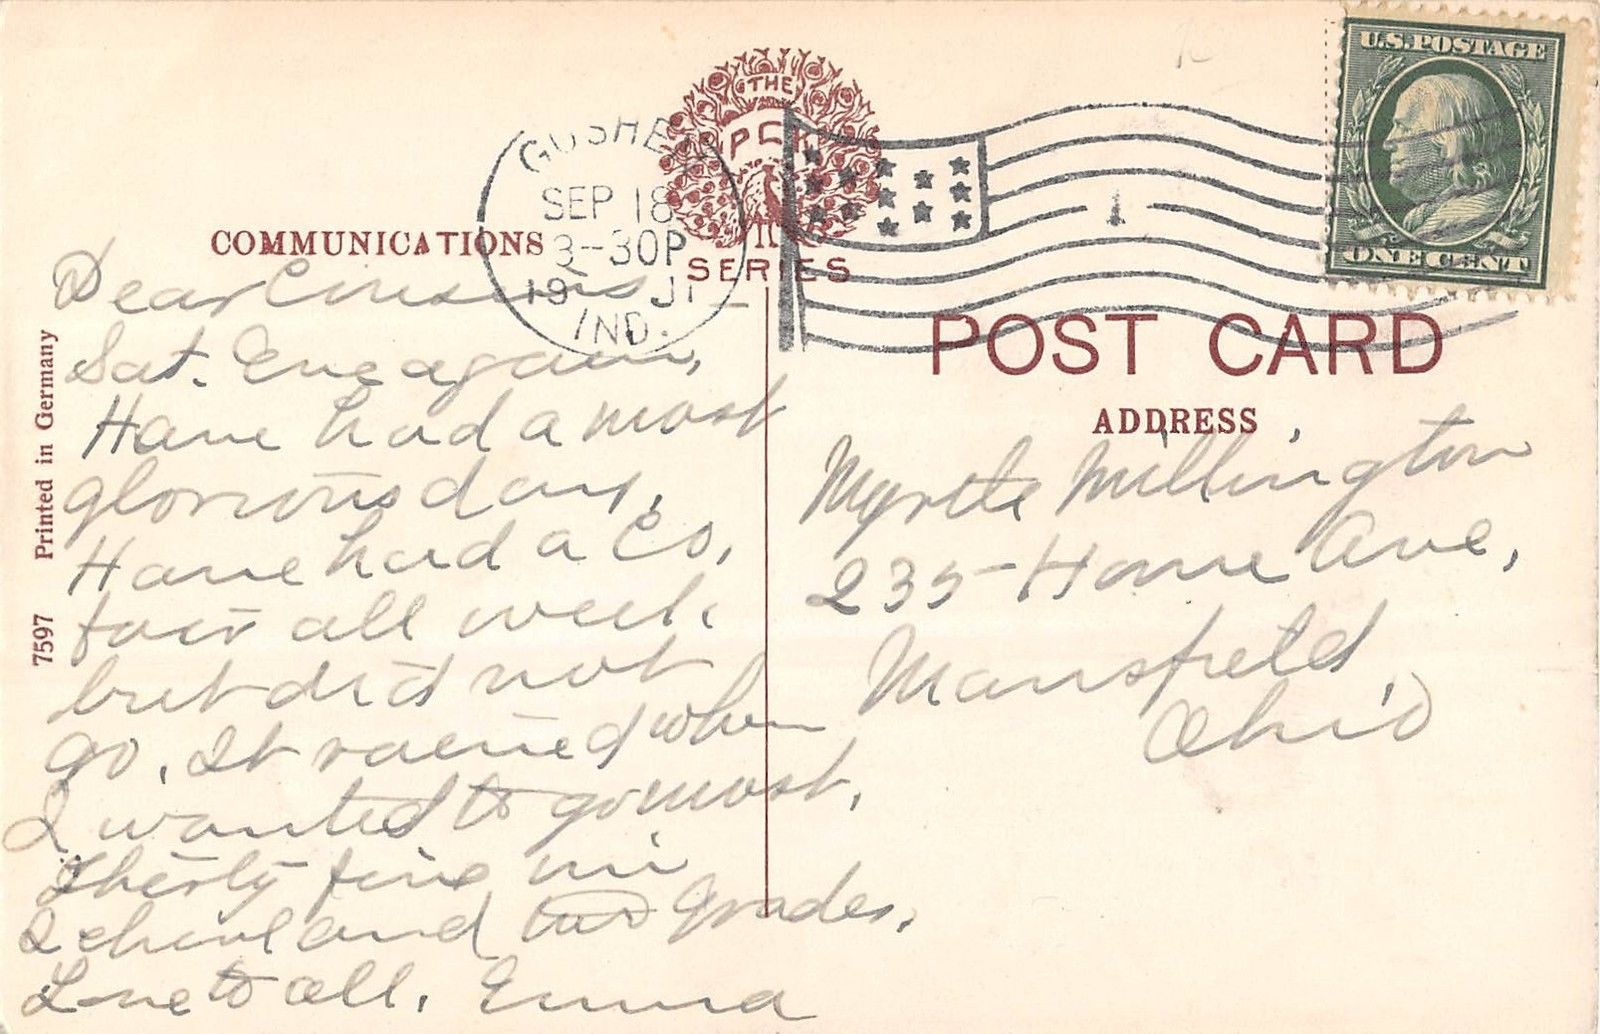 THE
PCK
SERIES
U.S. POSTAGE
ONE CENT
GOSHEN
SEP 18
3-30P
19
IND.
1
COMMUNICATIONS
POST CARD
ADDRESS
7597 Printed in Germany
Dear Cousins
Sat. Eve again,
Have had a most
glorious day,
Have had a Co,
fair all week
but did not
go. It rained when
I wanted to go most.
Thirty five in
School and two grades.
Love to all. Emma
Myrtle Millington
235- Home Ave,
Mansfield,
Ohio